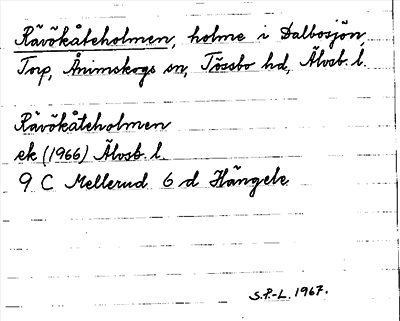 Rävökåteholmen, holme i Dalbosjön,
Torp, Ånimskogs sn, Tössbo hd, Älvsb. l.
Rävökåteholmen
ek (1966) Älvsb. l.
9 C Mellerud 6 d Hängele
S.P.-L. 1967.